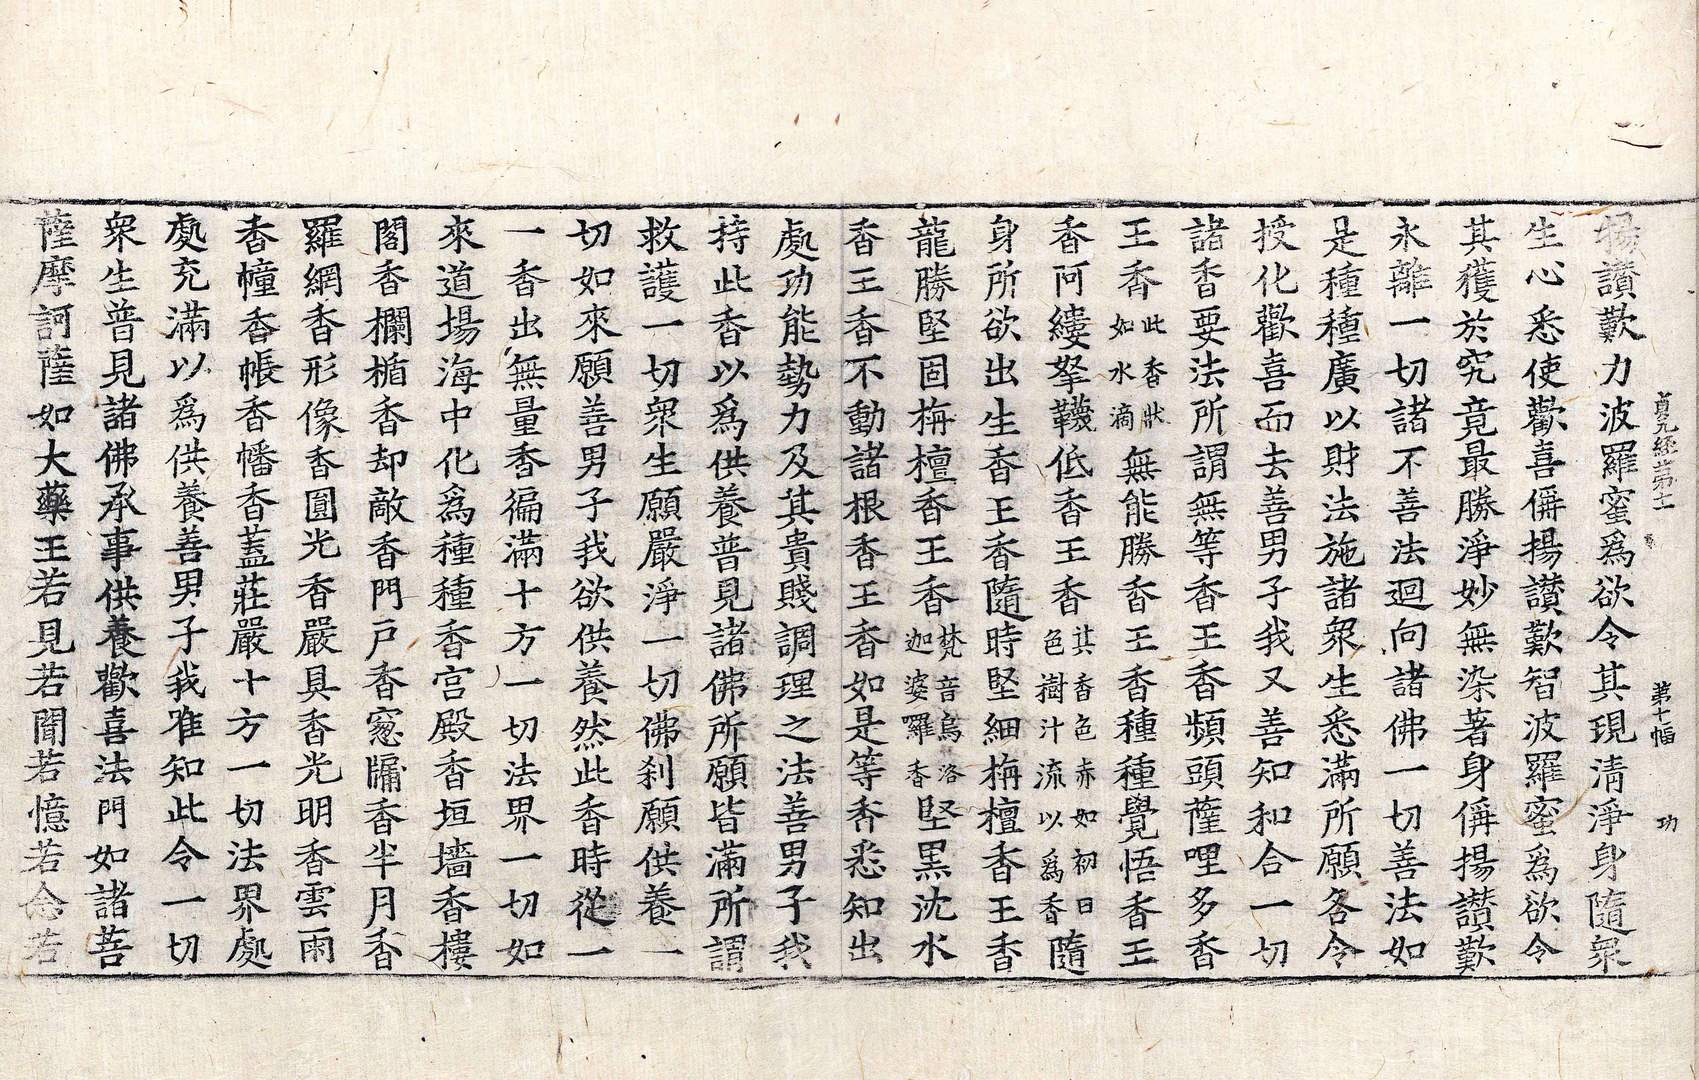 貞元經第十一 第十幅 功
揚讃歎力波羅蜜爲欲令其現清淨身隨衆
生心悉使歡喜偁揚讃歎智波羅蜜爲欲令
其獲於究竟最勝淨妙無染著身偁揚讃歎
永離一切諸不善法迴向諸佛一切善法如
是種種廣以財法施諸衆生悉滿所願各令
授化歡喜而去善男子我又善知和合一切
諸香要法所謂無等香王香頻頭薩哩多香
王香此香狀如水滴無能勝香王香種種覺悟香王
香阿縷拏韈低香王香其香色赤如初日色樹汁流以爲香隨
身所欲出生香王香隨時堅細栴檀香王香
龍勝堅固栴檀香王香梵音烏洛迦婆囉香堅黒沈水
香王香不動諸根香王香如是等香悉知出
處功能勢力及其貴賤調理之法善男子我
持此香以爲供養普見諸佛所願皆滿所謂
救護一切衆生願嚴淨一切佛刹願供養一
切如來願善男子我欲供養然此香時從一
一香出無量香徧滿十方一切法界一切如
來道場海中化爲種種香宮殿香垣墻香樓
閣香欄楯香却敵香門戸香窓牖香半月香
羅網香形像香圓光香嚴具香光明香雲雨
香幢香帳香幡香蓋莊嚴十方一切法界處
處充滿以爲供養善男子我唯知此令一切
衆生普見諸佛承事供養歡喜法門如諸菩
薩摩訶薩如大藥王若見若聞若憶若念若